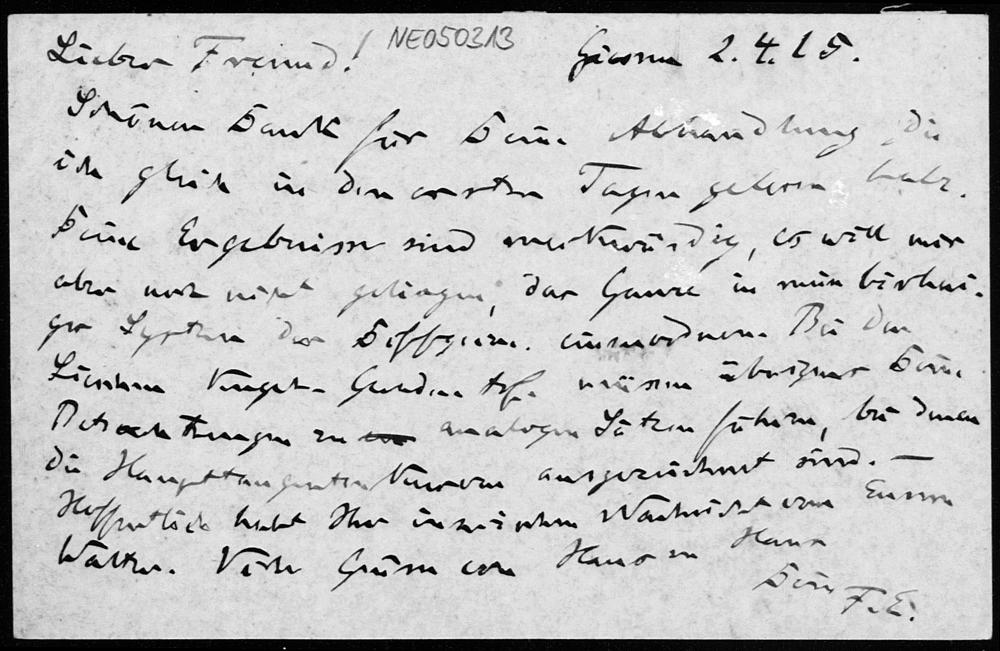 Lieber Freund! NE050313 Giessen 2.4.15.
Schönen Dank für Deine Abhandlung die
ich gleich in den ersten Tagen gelesen habe.
Deine Ergebnisse sind merkwürdig, es will mir
aber noch nicht gelingen, das Ganze in mein bisheri-
ges System der Diffgeom. einzuordnen. Bei der
Lieschen Kugel-Geraden tsf. müssen übrigens Deine
Betrachtungen zu analogen Sätzen führen, bei denen
die Haupttangentenkurven ausgezeichnet sind. —
Hoffentlich habt Ihr inzwischen Nachricht von Eurem
Walter. Viele Grüsse von Haus zu Haus
Dein F.E.